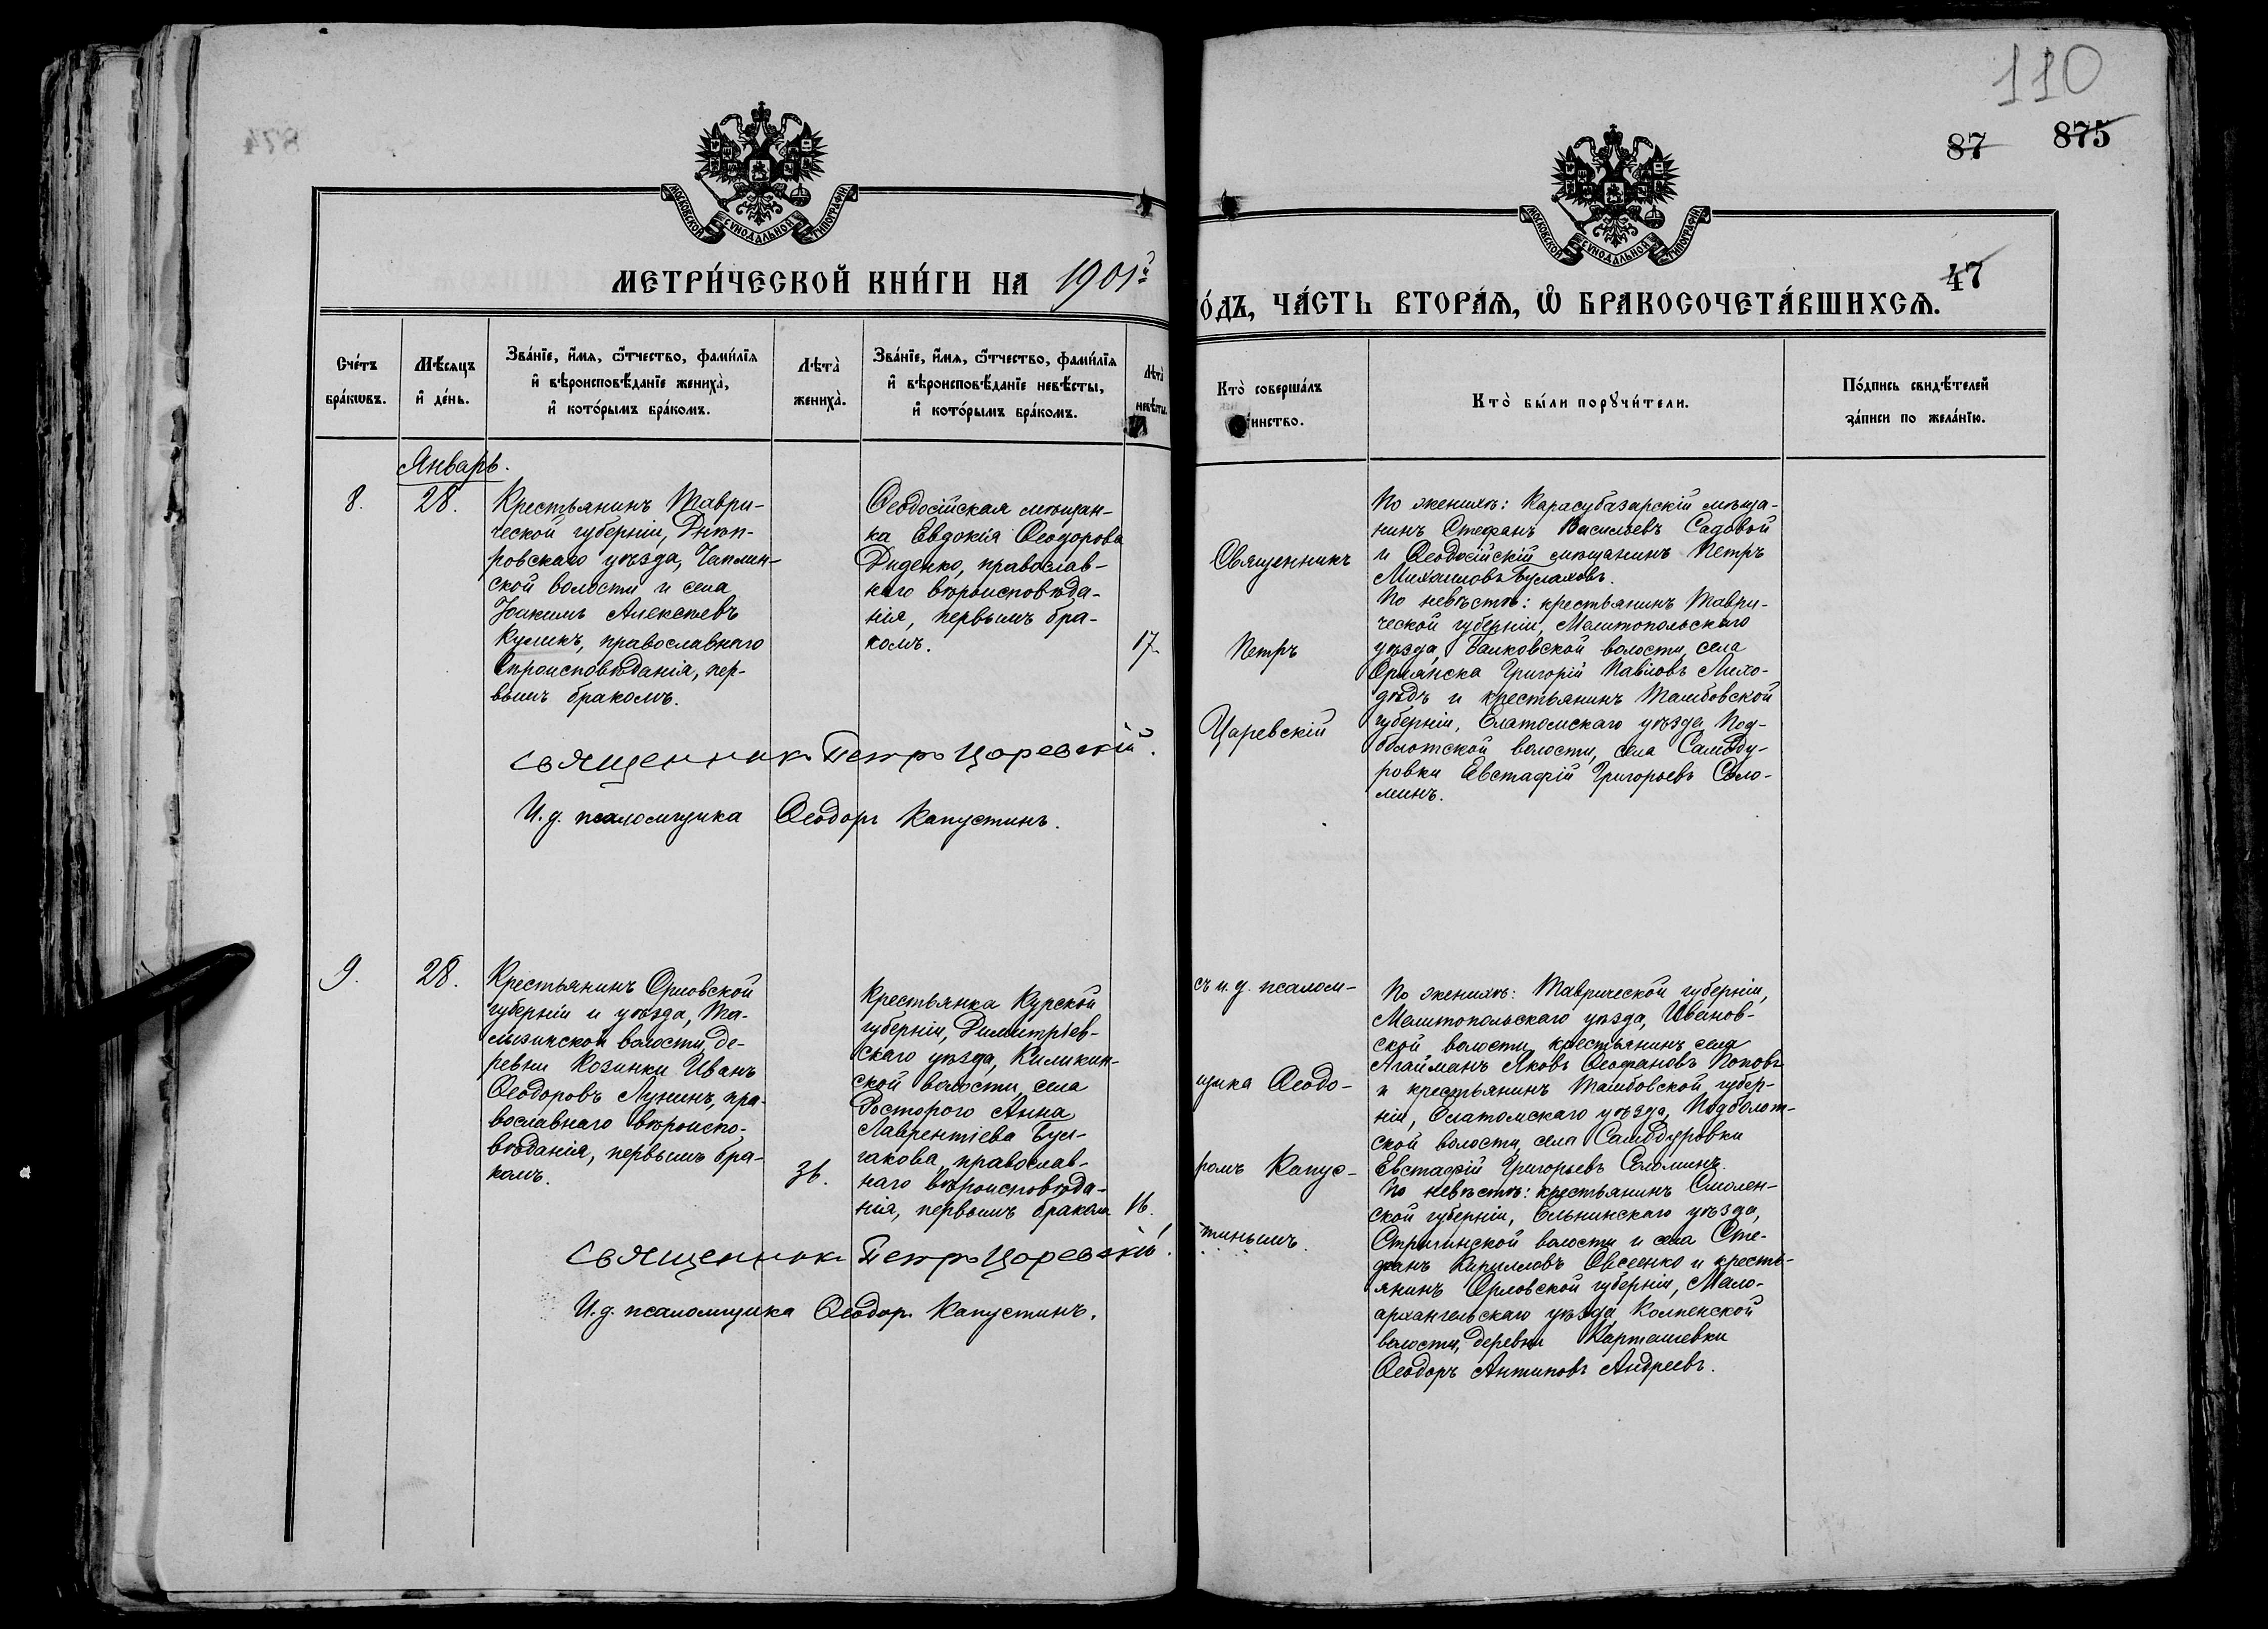 110
87 875
47
МОСКОВСКОЙ СѴНОДАЛЬНОЙ ТИПОГРАФІИ
МОСКОВСКОЙ СѴНОДАЛЬНОЙ ТИПОГРАФІИ
МЕТРИ́ЧЕСКОЙ КНИ́ГИ НА 1901й
О́ДЪ, ЧА́СТЬ ВТОРА́Ѧ, Ѡ҆ БРАКОСОЧЕТА́ВШИХСѦ.
Сче́тъ
бра́кѡвъ.
Мѣ́сѧцъ
и҆ де́нь.
Зва́нїе, и҆́мѧ, ѻ҆́тчество, фами́лїѧ
и҆ вѣроисповѣ́данїе жениха̀,
и҆ кото́рымъ бра́комъ.
Лѣта̀
жениха̀.
Зва́нїе, и҆́мѧ, ѻ҆́тчество, фами́лїѧ
и҆ вѣроисповѣ́данїе невѣ́сты,
и҆ кото́рымъ бра́комъ.
Лѣта̀
невѣ́сты.
Кто̀ соверша́лъ
инство.
Кто̀ бы́ли порꙋчи́тели.
По́дпись свидѣ́телей
за́писи по жела́нїю.
Январь.
8.
28.
Крестьянинъ Таври-
ческой губерніи, Днѣп-
ровскаго уѣзда, Чаплин-
ской волости и села
Іоакимъ Алексѣевъ
Куликъ, православнаго
вѣроисповѣданія, пер-
вымъ бракомъ.
Ѳеодосійская мѣщан-
ка Евдокія Ѳеодорова
Диденко, православ-
наго вѣроисповѣда-
нія, первымъ бра-
комъ.
17.
Священникъ
Петръ
Царевскій
По женихѣ: Карасубазарскій мѣща-
нинъ Стефанъ Васильевъ Садовой
и Ѳеодосійскій мѣщанинъ Петръ
Михаиловъ Булаховъ.
По невѣстѣ: крестьянинъ Таври-
ческой губерніи, Мелитопольскаго
уѣзда, Балковской волости, села
Орлянска Григорій Павловъ Лихо-
дѣдъ и крестьянинъ Тамбовской
губерніи, Елатомскаго уѣзда, Под-
болотской волости, села Самоду-
ровки Евстафій Григорьевъ Соло-
минъ.
Священникъ Петръ Царевскій.
И. д. псаломщика Ѳеодоръ Капустинъ.
9.
28.
Крестьянинъ Орловской
губерніи и уѣзда, Та-
мызинской волости, де-
ревни Козинки Иванъ
Ѳеодоровъ Лунинъ, пра-
вославнаго вѣроиспо-
вѣданія, первымъ бра-
комъ.
36.
Крестьянка Курской
губерніи, Димитріев-
скаго уѣзда, Киликин-
ской волости, села
Расторого Анна
Лаврентіева Бул-
гакова, православ-
наго вѣроисповѣда-
нія, первымъ бракомъ
16.
съ и. д. псалом-
щика Ѳеодо-
ромъ Капус-
тинымъ.
По женихѣ: Таврической губерніи,
Мелитопольскаго уѣзда, Иванов-
ской волости, крестьянинъ села
Агайманъ Яковъ Ѳеофановъ Поповъ
и крестьянинъ Тамбовской губер-
ніи, Елатомскаго уѣзда, Подболот-
ской волости, села Самодуровки
Евстафій Григорьевъ Соломинъ.
По невѣстѣ: крестьянинъ Смолен-
ской губерніи, Ельнинскаго уѣзда,
Стригинской волости и села Сте-
фанъ Кирилловъ Овсеенко и кресть-
янинъ Орловской губерніи, Мало-
архангельскаго уѣзда, Колпенской
волости, деревни Карташевки
Ѳеодоръ Антиповъ Андреевъ.
Священникъ Петръ Царевскій.
И. д. псаломщика Ѳеодоръ Капустинъ.